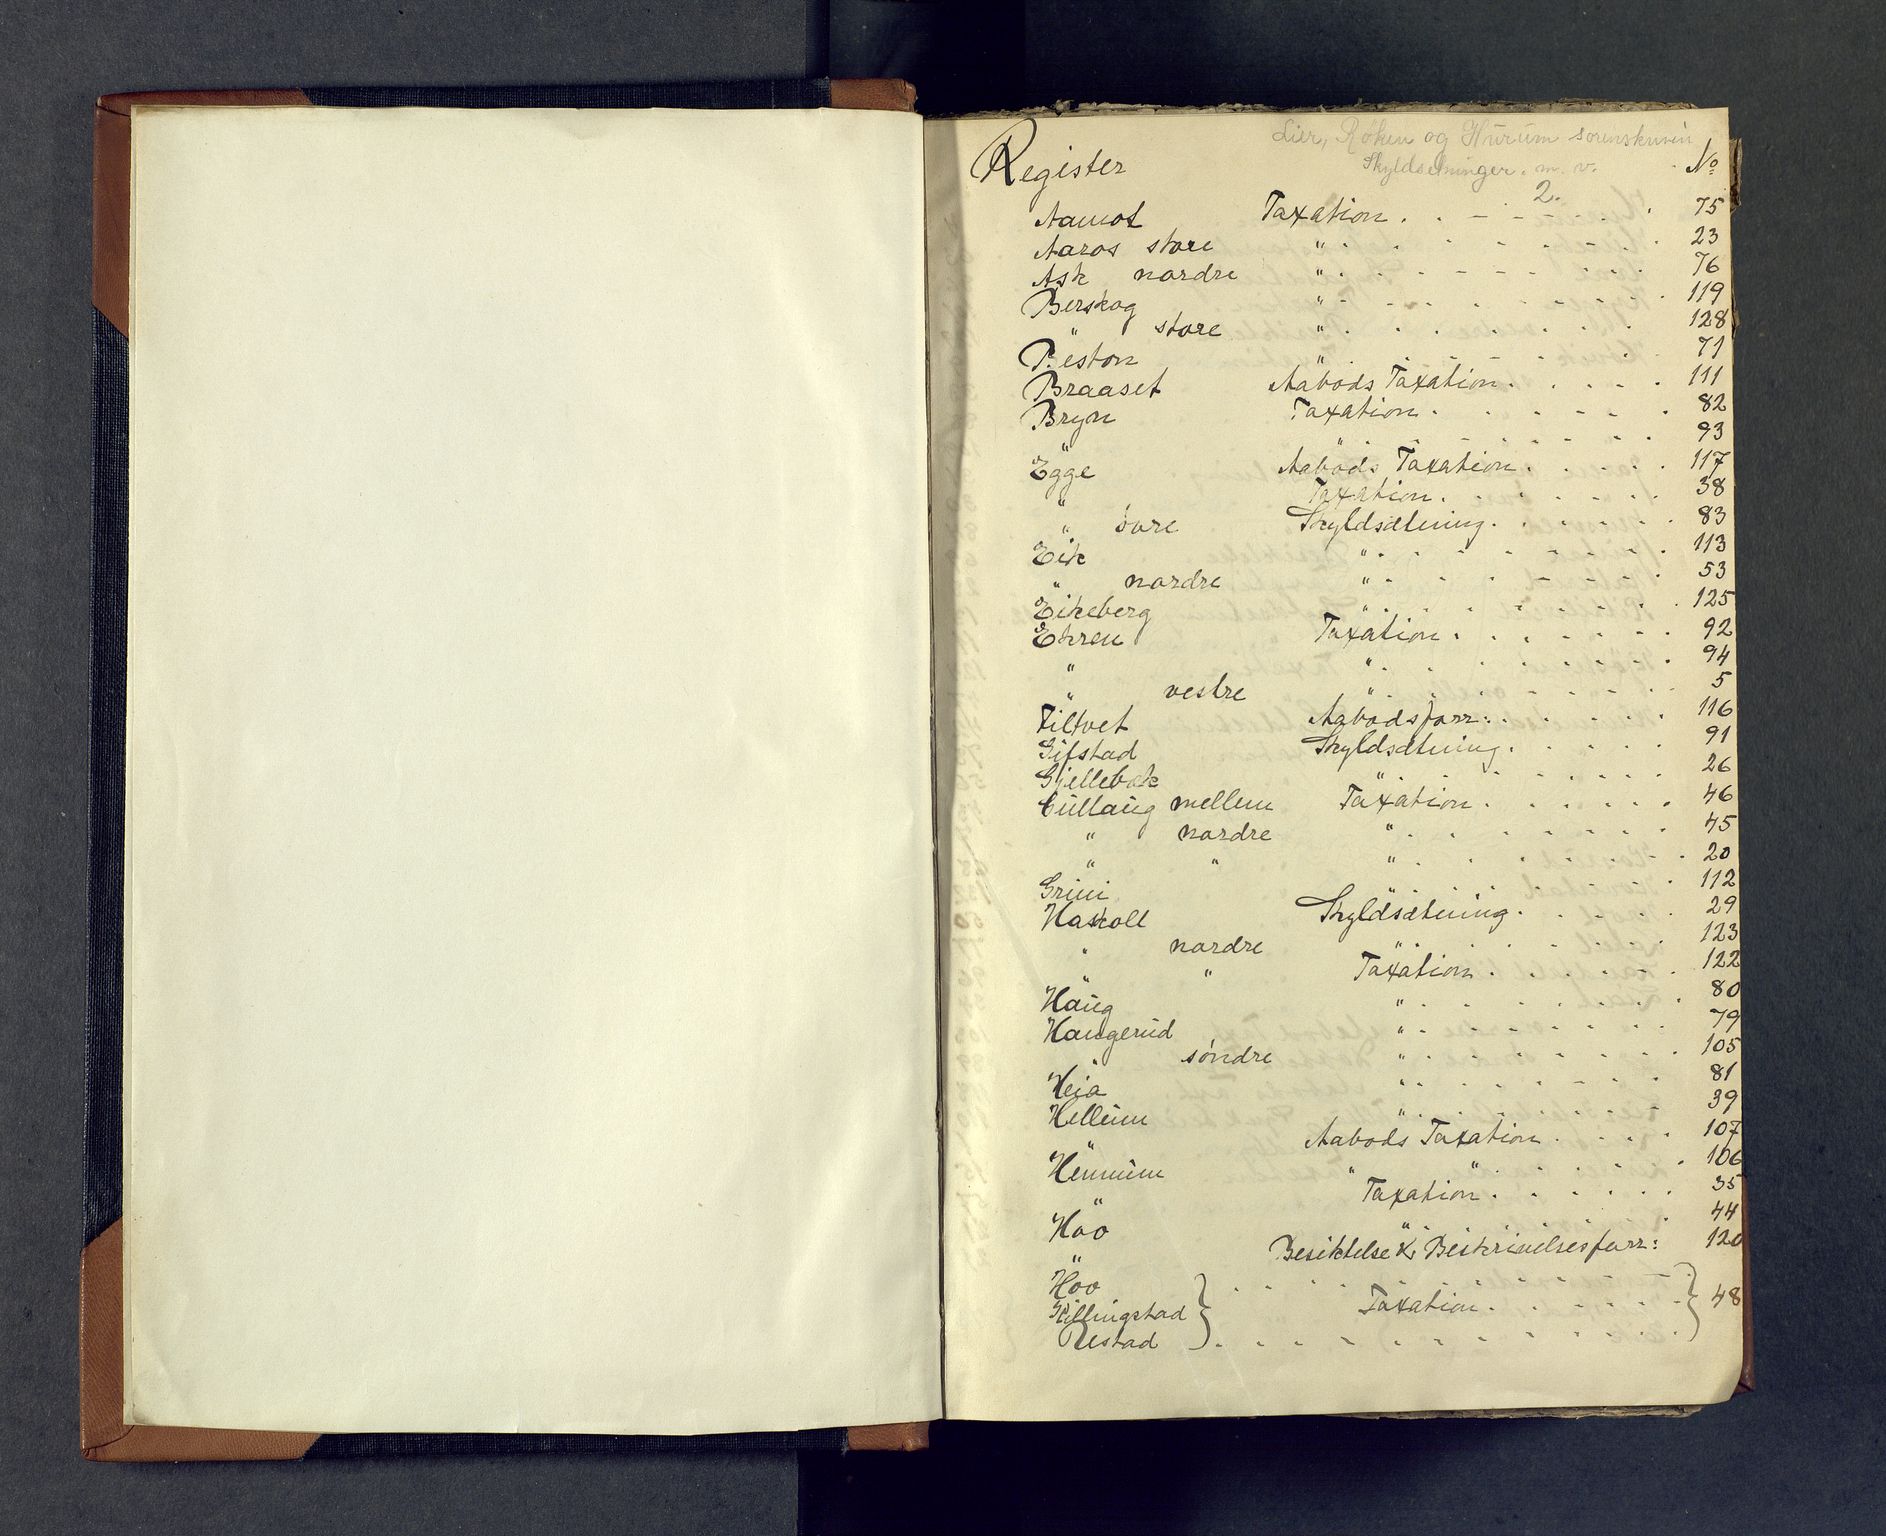 Lier, Røken og Hurum sorenskriveri
Skyldsetninger. m. v.
2.
Register № 
Aamot Taxation 75
Aaros store " 23
Ask nordre " 76
Berskog " 119
" store " 128
Beston " 71
Braaset Aabods Taxation 111
Bryn Taxation 82
" " 93
Egge Aabods Taxation 117
" Taxation 38
" övre Skyldsætning 83
Eik " 113
" nordre " 53
Eikeberg " 125
Ehren Taxation 92
" " 94
" vestre " 5
Filtvet Aabodsforr: 116
Gifstad Skyldsætning 91
Gjellebek " 26
Gullaug mellem Taxation 46
" nordre " 45
" " " 20
Grini " 112
Haskoll Skyldsætning 29
" nordre " 123
" " Taxation 122
Haug " 80
Haugerud " 79
" söndre " 105
Heia " 81
Hellum " 39
" Aabods Taxation 107
Hennum " " 106
" Taxation 35
Höo " 44
" Besiktelse & Beskrivelsesforr: 120
Höo
Killingstad } Taxation } 48
Restad